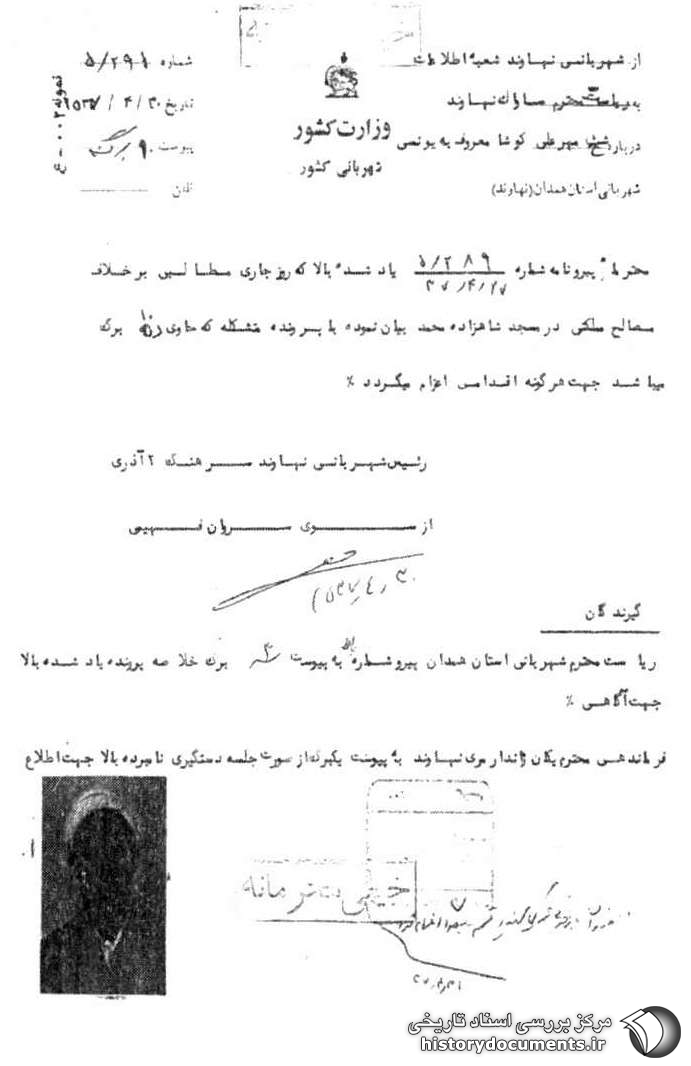 از شهربانی نهاوند شعبه اطلاعات
به ریاست محترم ساواک نهاوند
درباره شیخ مهرعلی کوشا معروف به یونسی
شهربانی استان همدان (نهاوند)
وزارت کشور
شهربانی کشور
شماره ۵/۲۹۱
تاریخ ۳۰/۴/۲۵۳۷
پیوست ۹۰ برگ
محترماً پیرو نامه شماره ۵/۲۸۹ یاد شده بالا که روز جاری مطالبی بر خلاف
۳۷/۴/۲۷
مصالح مملکتی در مسجد شاهزاده محمد بیان نموده با پرونده متشکله که حاوی برگ
میباشد جهت هرگونه اقدامی اعزام میگردد ٪
رئیس شهربانی نهاوند سرهنگ ۲ آذری
از سوی سروان فهیمی
۳۰/۴/۲۵۳۷
گیرندگان
ریاست محترم شهربانی استان همدان پیرو شماره بالا به پیوست ۳ برگ خلاصه پرونده یاد شده بالا
جهت آگاهی ٪
فرماندهی محترم یکان ژاندارمری نهاوند به پیوست یکبرگ از صورت جلسه دستگیری نامبرده بالا جهت اطلاع
خیلی محرمانه
مرکز بررسی اسناد تاریخی
historydocuments.ir